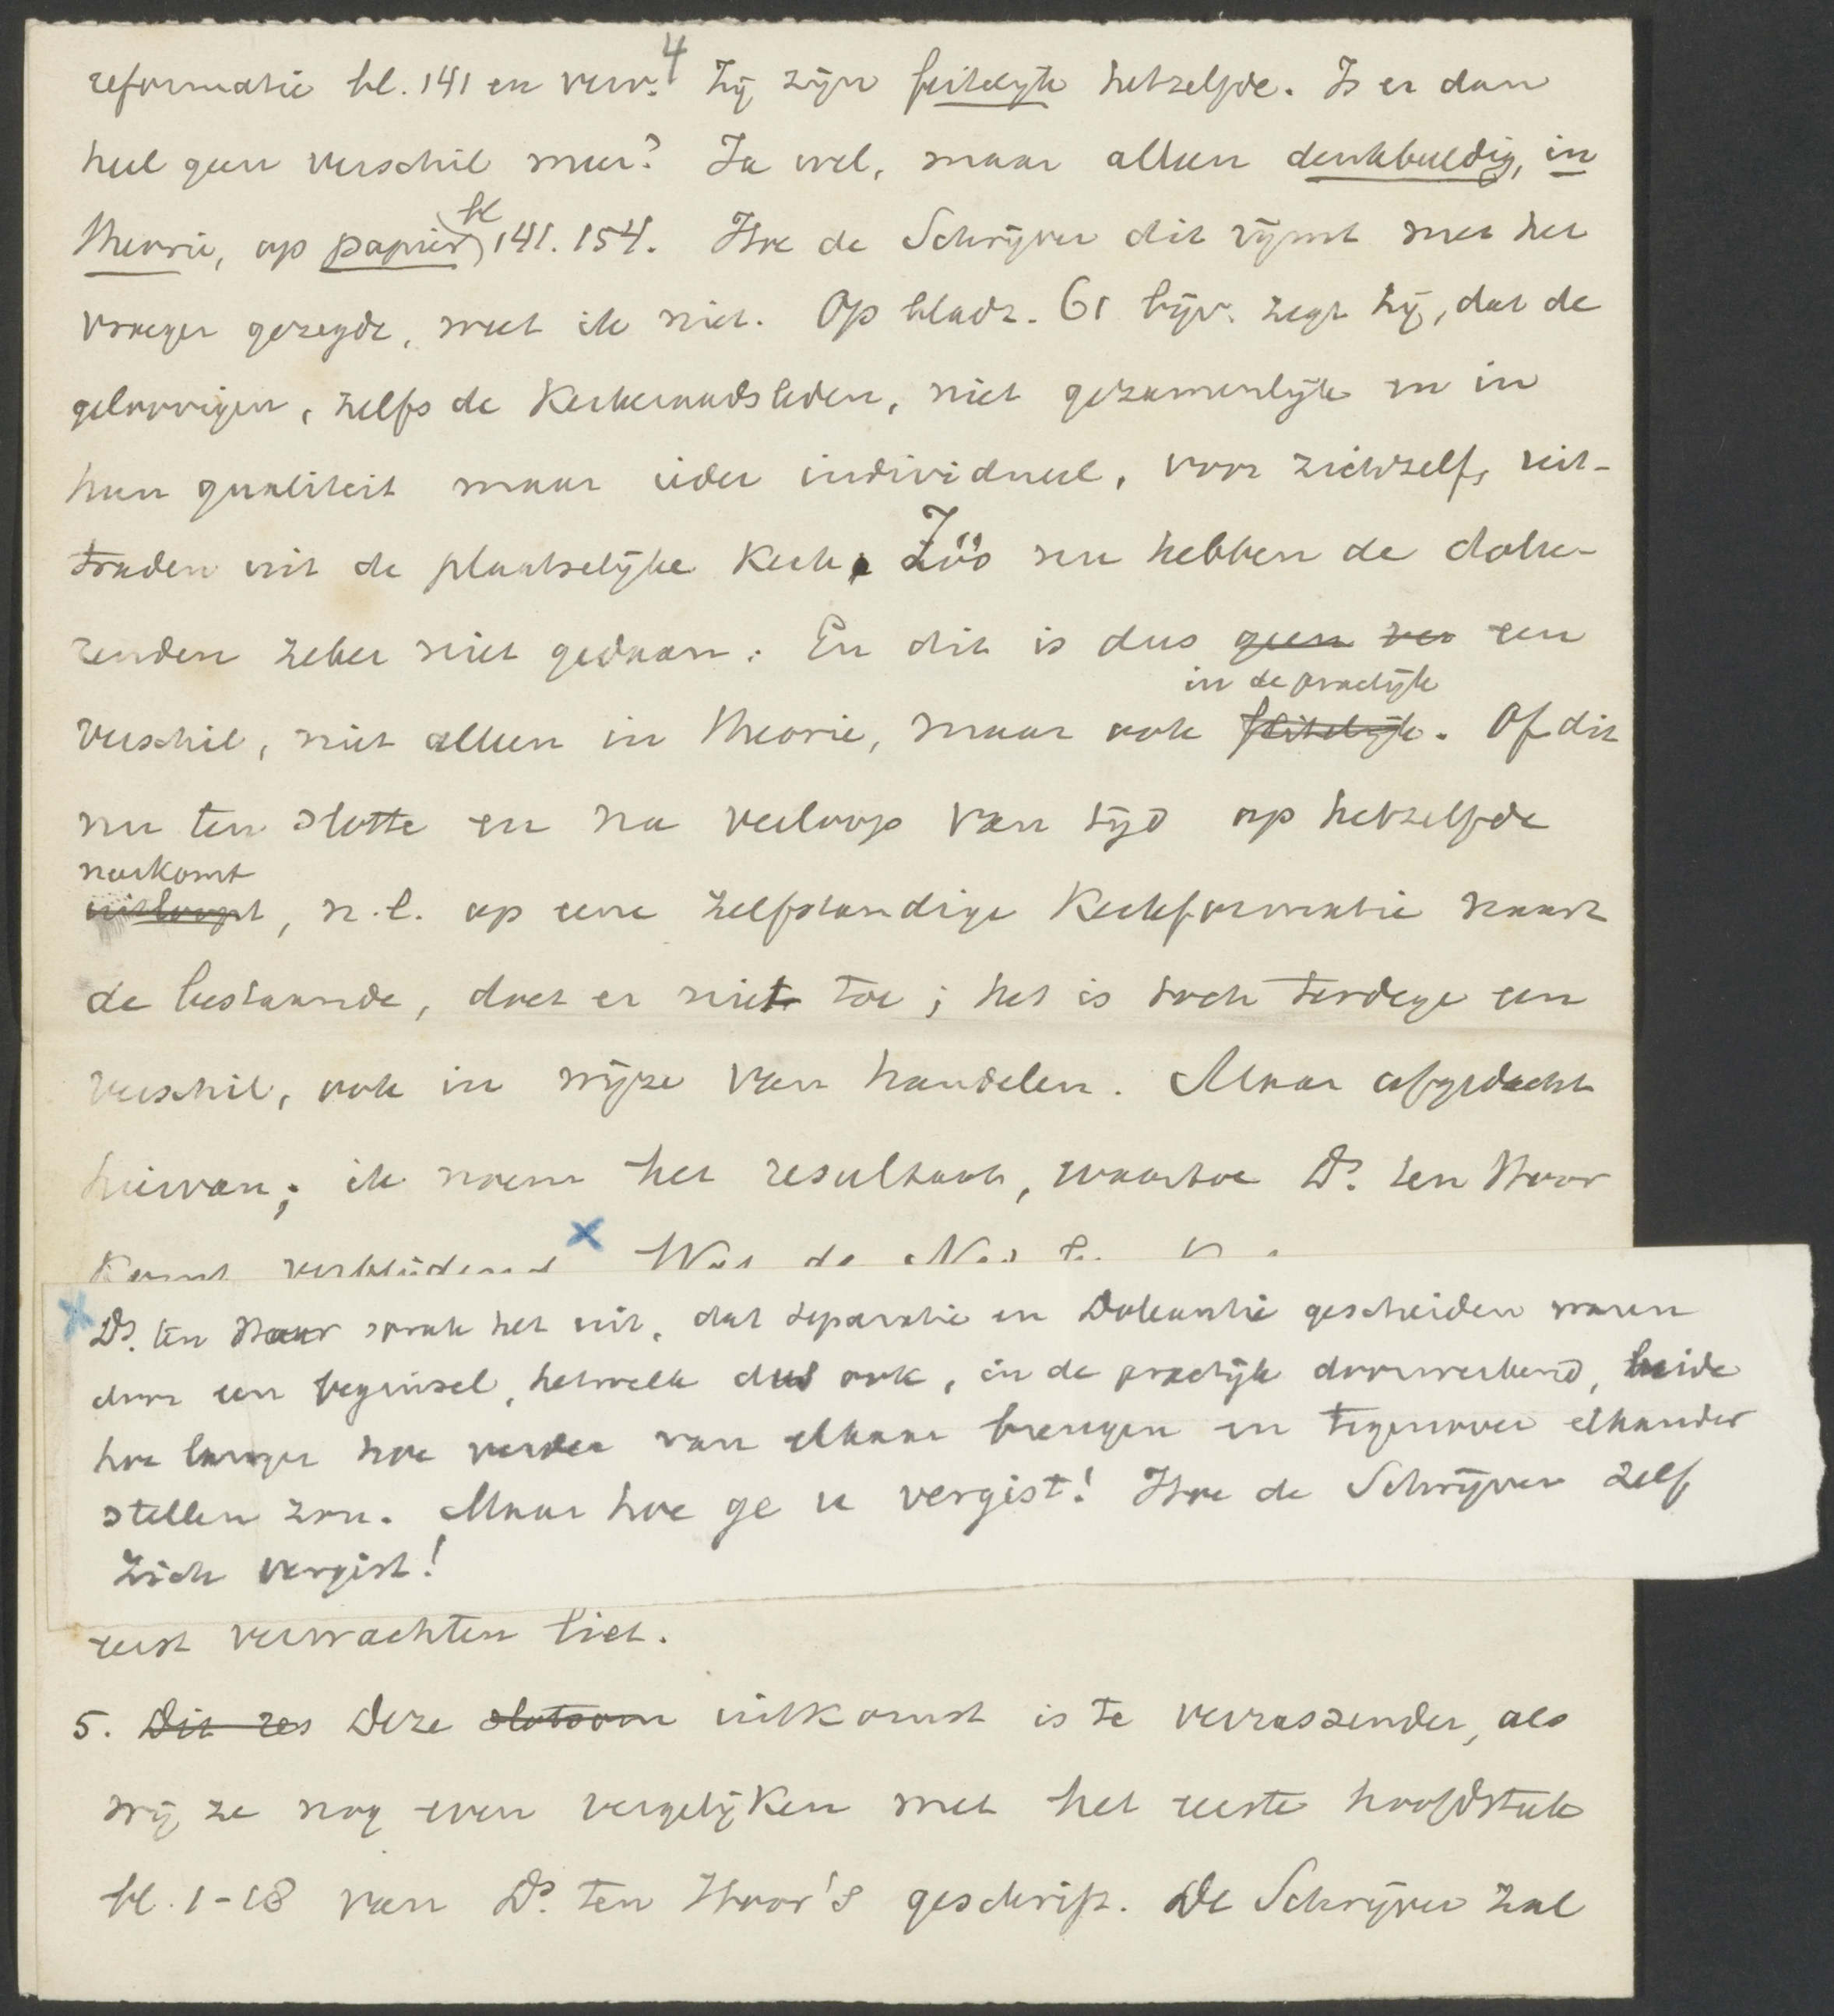 4
reformatie bl. 141 en verv. Zij zijn feitelijk hetzelfde. Is er dan
heel geen verschil meer? Ja wel, maar alleen denkbeeldig, in
theorie, op papier, bl 141. 154. Hoe de Schrijver dit rijmt met het
vroeger gezegde, weet ik niet. Op bladz. 61 bijv. zegt hij, dat de
geloovigen, zelfs de Kerkeraadsleden, niet gezamenlijk en in
hun qualiteit maar ieder individueel, voor zichzelf, uit-
traden uit de plaatselijke Kerk. Zóó nu hebben de dolee-
renden zeker niet gedaan. En dit is dus geen ver een
in de practijk
verschil, niet alleen in theorie, maar ook feitelijk. Of dit
nu ten slotte en na verloop van tijd op hetzelfde
neerkomt
uitloopt, n.l. op eene zelfstandige Kerkformatie naast
de bestaande, doet er niet toe; het is toch terdege een
verschil, ook in wijze van handelen. Maar afgedacht
hiervan; ik noem het resultaat, waartoe Ds. ten Hoor
Komt verblijdend X Wat de
X Ds. ten Hoor sprak het uit, dat Separatie en Doleantie gescheiden waren
door een beginsel, hetwelk dus ook, in de practijk doorwerkend, beide
hoe langer hoe verder van elkaar brengen en tegenover elkander
stellen zou. Maar hoe ge u vergist! Hoe de Schrijver zelf
zich vergist!
eerst verwachten liet.
5. Dit res Deze slotsom uitkomst is te verrassender, als
wij ze nog even vergelijken met het eerste hoofdstuk
bl. 1-18 van Ds. ten Hoor's geschrift. De Schrijver zal